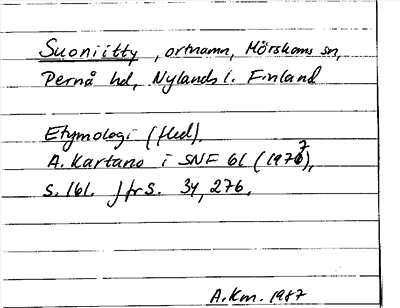 Suoniitty, ortnamn, Mörskoms sn,
Pernå hd, Nylands l. Finland
Etymologi (fled).
A. Kartano i SNF 61 (1977),
s. 161. Jfr s. 34, 276.
A.Km. 1987